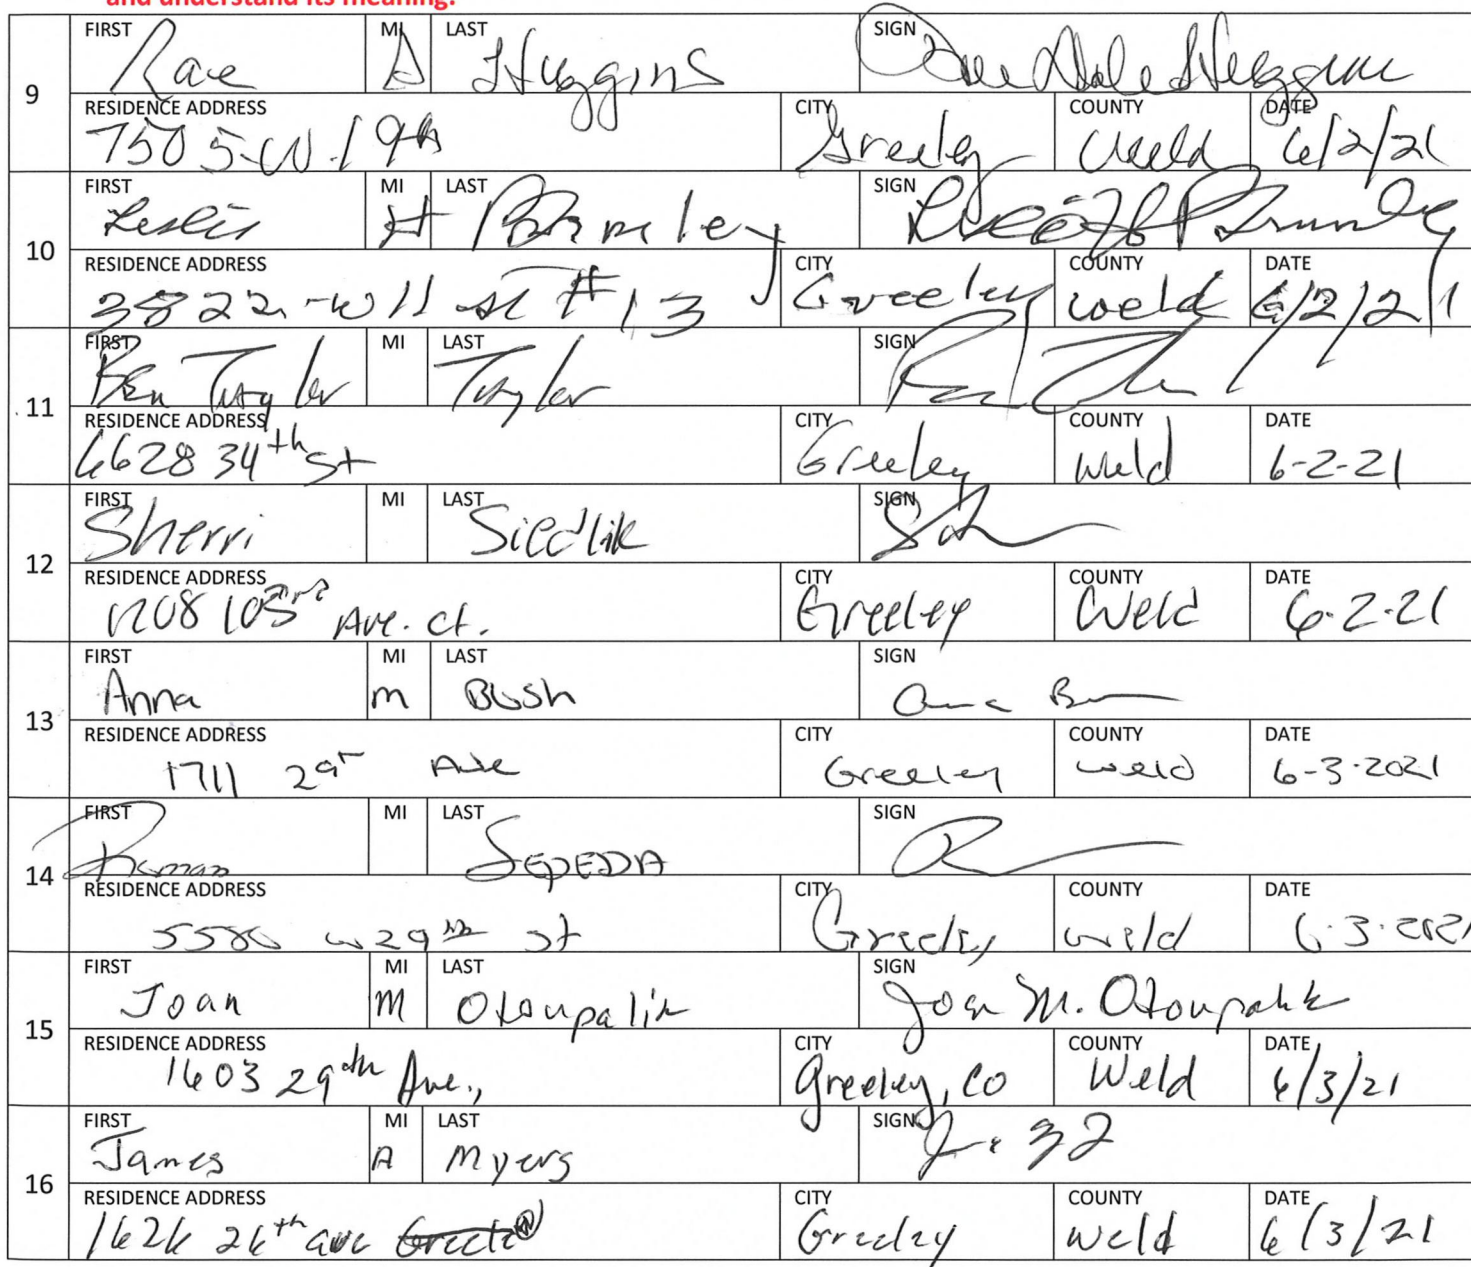 and understand its meaning.
9
FIRST Rae MI D LAST Huggins SIGN Rae Dale Huggins
RESIDENCE ADDRESS 7505 W. 19th CITY Greeley COUNTY Weld DATE 6/2/21
10
FIRST Leslie MI H LAST SIGN
RESIDENCE ADDRESS 3822 - W 11 st # 13 CITY Greeley COUNTY weld DATE 6/2/21
11
FIRST Ben Taylor MI LAST Taylor SIGN
RESIDENCE ADDRESS 6628 34th St CITY Greeley COUNTY Weld DATE 6-2-21
12
FIRST Sherri MI LAST Siedlik SIGN
RESIDENCE ADDRESS 1208 103rd Ave. Ct. CITY Greeley COUNTY Weld DATE 6-2-21
13
FIRST Anna MI m LAST Bush SIGN
RESIDENCE ADDRESS 1711 29th Ave CITY Greeley COUNTY weld DATE 6-3-2021
14
FIRST Roman MI LAST SEPEDA SIGN
RESIDENCE ADDRESS 5580 w 29th st CITY Greeley COUNTY weld DATE 6-3-2021
15
FIRST Joan MI M LAST Otoupalik SIGN Joan M. Otoupalik
RESIDENCE ADDRESS 1603 29th Ave., CITY Greeley, CO COUNTY Weld DATE 6/3/21
16
FIRST James MI A LAST Myers SIGN
RESIDENCE ADDRESS 1626 26th ave CITY Greeley COUNTY weld DATE 6/3/21